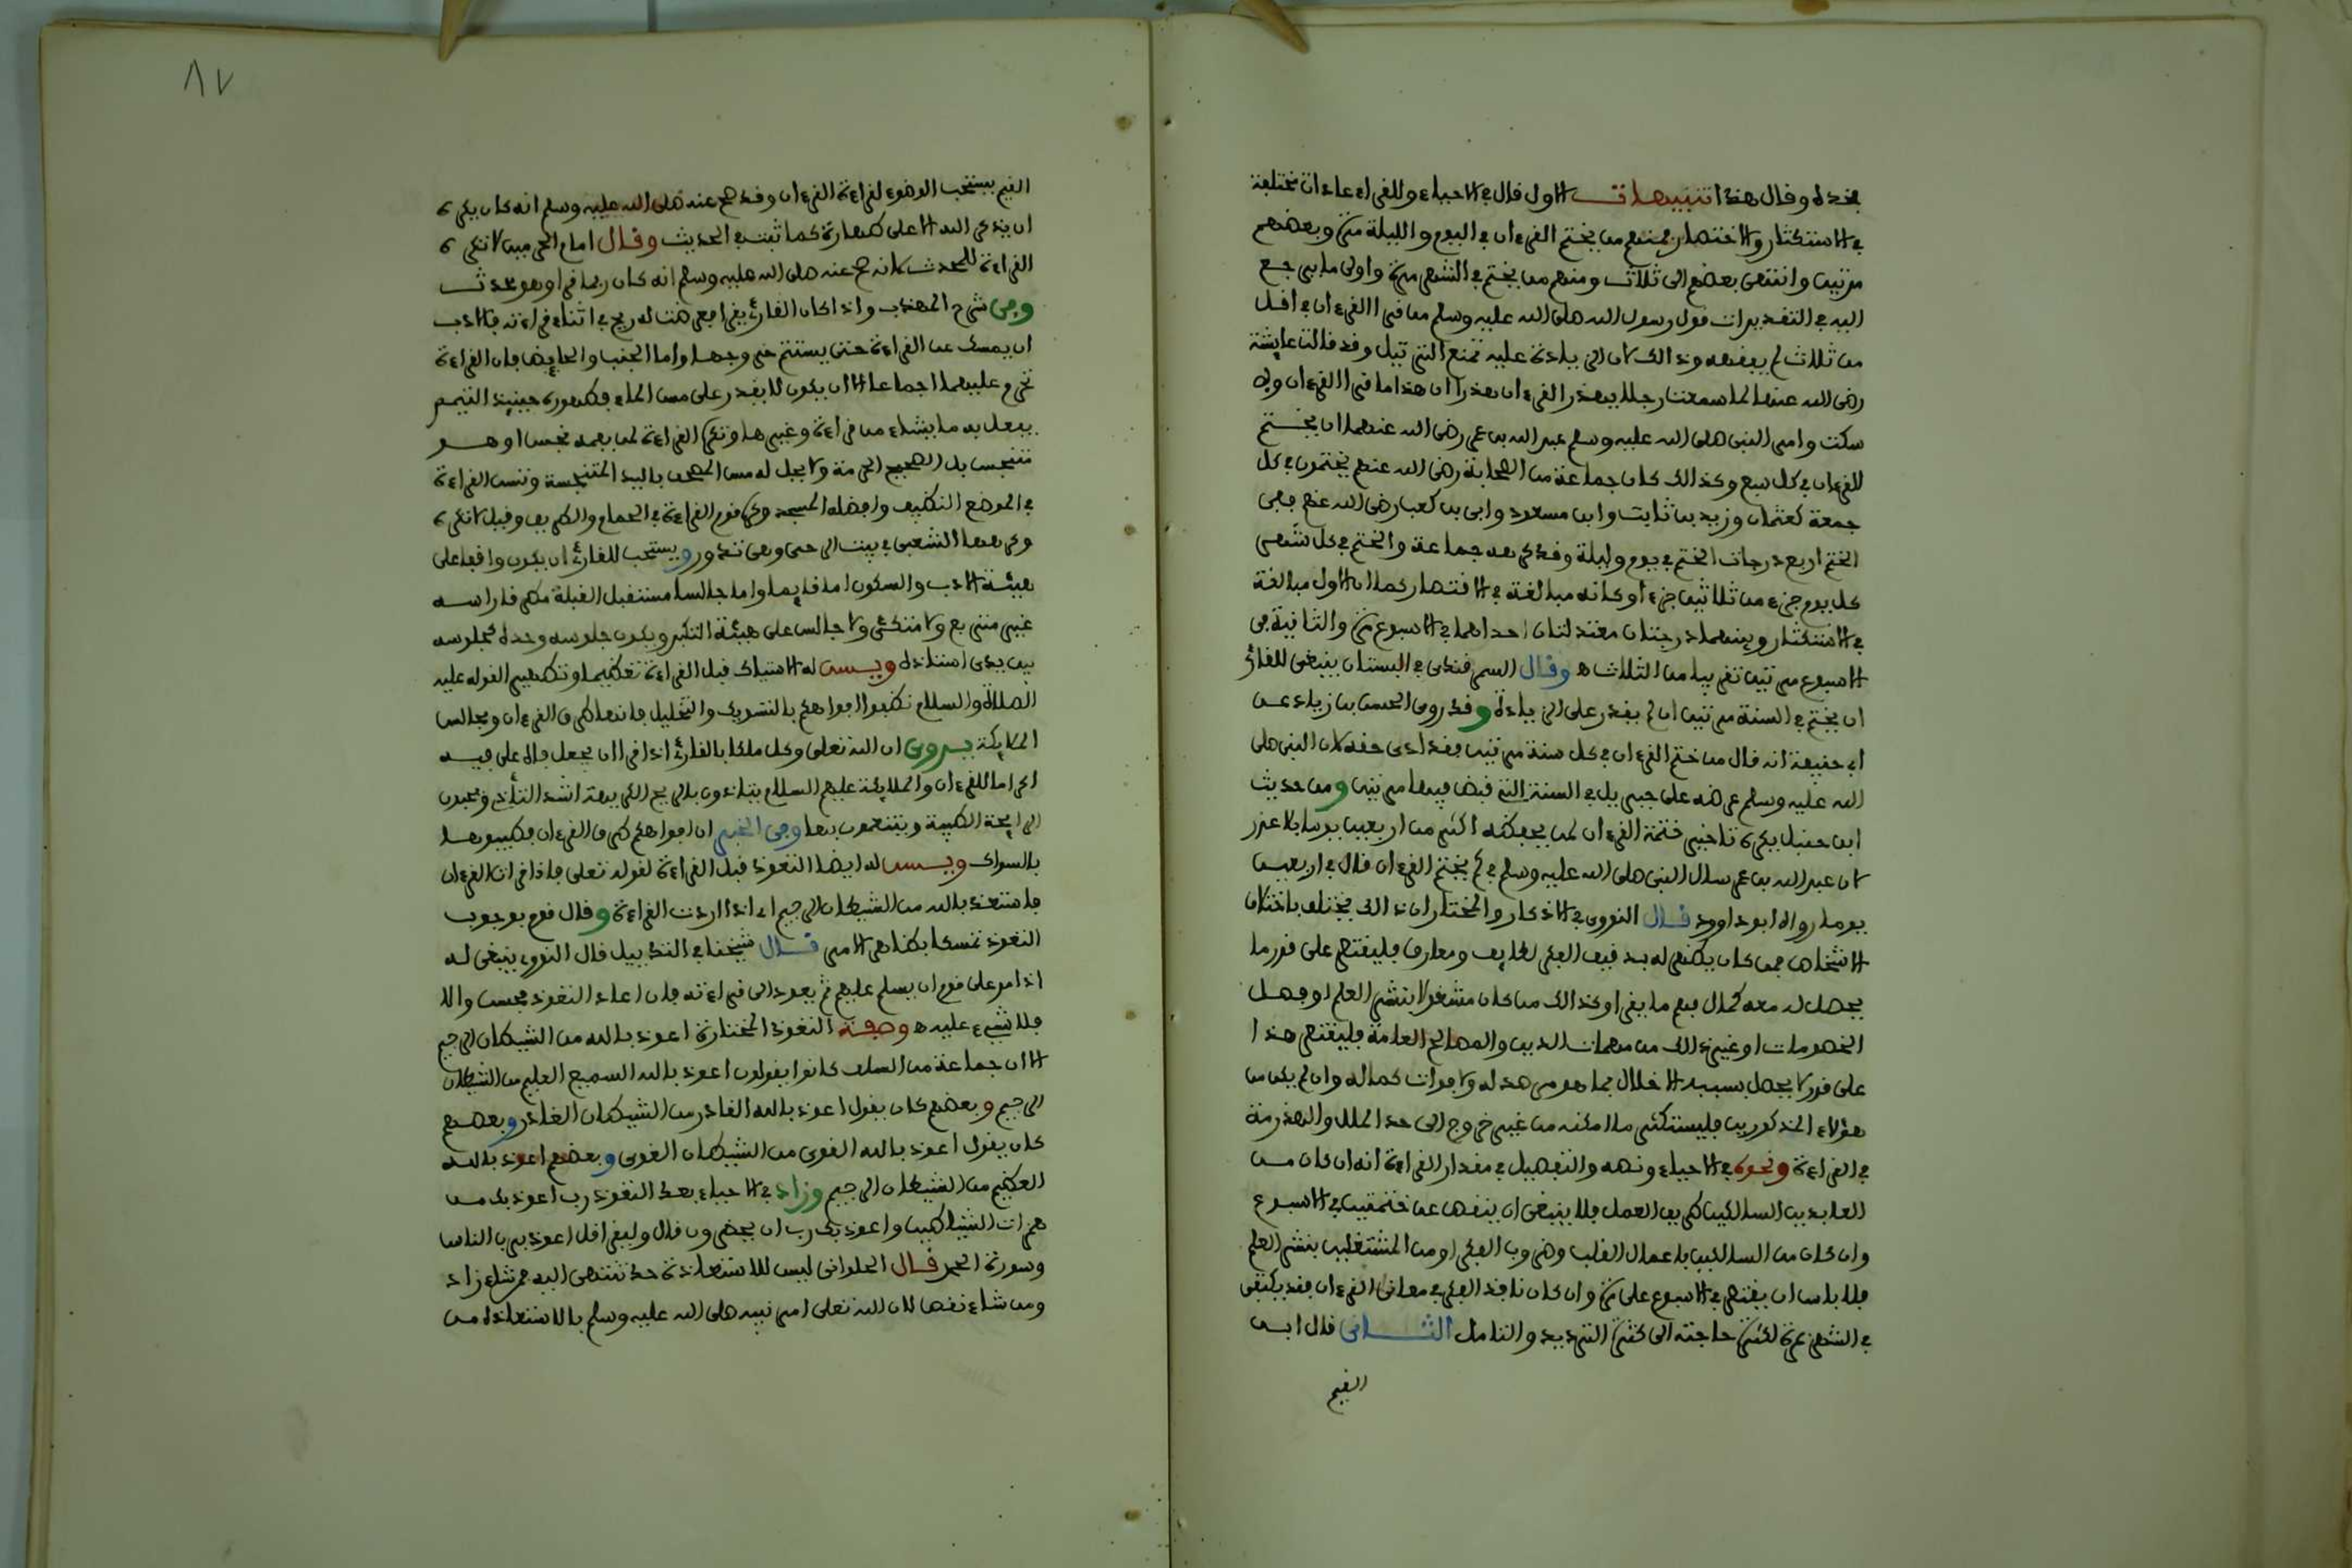 بخده وقال هذا تنبيهات الاول قال في الاحياء وللقراء عادات مختلفة
في الاستكثار والاختصار فمنهم من يختم القرءان في اليوم والليلة مرة وبعضهم
مرتين وانتهى بعضهم الى ثلاث ومنهم من يختم في الشهر مرة واولى ما يرجع
اليه في التقديرات قول رسول الله صلى الله عليه وسلم من قرا القرءان في اقل
من ثلاث لم يفقهه وذالك لان الزيادة عليه تمنع الترتيل وقد قالت عايشة
رضى الله عنها لما سمعت رجلا يهذر القرءان هذرا ان هذا ما قرا القرءان ولا
سكت وامر النبى صلى الله عليه وسلم عبد الله بن عمر رضى الله عنهما ان يختم
القرءان في كل سبع وكذالك كان جماعة من الصحابة رضى الله عنهم يختمون في كل
جمعة كعثمان وزيد بن ثابت وابن مسعود وابى بن كعب رضى الله عنهم ففى
الختم اربع درجات الختم في يوم وليلة وقد كرهه جماعة والختم في كل شهر
كل يوم جزء من ثلاثين جزءا وكانه مبالغة في الاقتصار كما ان الاول مبالغة
في الاستكثار وبينهما درجتان معتدلتان احداهما في الاسبوع مرة والثانية في
الاسبوع مرتين تقريبا من الثلاث اه وقال السمرقندى في البستان ينبغى للقارئ
ان يختم في السنة مرتين ان لم يقدر على الزيادة وقد روى الحسن بن زياد عن
ابى حنيفة انه قال من ختم القرءان في كل سنة مرتين فقد ادى حقه لان النبى صلى
الله عليه وسلم عرضه على جبريل في السنة التى قبض فيها مرتين ومن حديث
ابن حنبل يكره تاخير ختمة القرءان لمن يحفظه اكثر من اربعين يوما بلا عذر
لان عبد الله بن عمر سال النبى صلى الله عليه وسلم في كم يختم القرءان قال في اربعين
يوما رواه ابو داود قال النووى في الاذكار والمختار ان ذالك يختلف باختلاف
الاشخاص فمن كان يظهر له بدقيق الفكر لطايف ومعارف فليقتصر على قدر ما
يحصل له معه كمال فهم ما يقرا وكذالك من كان مشغولا بنشر العلم او فصل
الخصومات او غير ذالك من مهمات الدين والمصالح العامة فليقتصر هذا
على قدر لا يحصل بسببه الاخلال بما هو مرصد له ولا فوات كماله وان لم يكن من
هؤلاء المذكورين فليستكثر ما امكنه من غير خروج الى حد الملل والهذرمة
في القراءة ونحوه في الاحياء ونصه والتفصيل في مقدار القراءة انه ان كان من
العابدين السالكين طريق العمل فلا ينبغى ان ينقص عن ختمتين في الاسبوع
وان كان من السالكين باعمال القلب وضروب الفكر او من المشتغلين بنشر العلم
فلا باس ان يقتصر في الاسبوع على مرة وان كان نافذ الفكر في معانى القرءان فقد يكتفى
في الشهر بمرة لكثرة حاجته الى كثرة الترديد والتامل الثانى قال ابن
القيم
٨٧
القيم يستحب الوضوء لقراءة القرءان وقد صح عنه صلى الله عليه وسلم انه كان يكره
ان يذكر الله الا على طهارة كما ثبت في الحديث وقال امام الحرمين لا تكره
القراءة للمحدث لانه صح عنه صلى الله عليه وسلم انه كان ربما قرا وهو محدث
وفى شرح المهذب واذا كان القارئ يقرا فعرضت له ريح في اثناء قراءته فالادب
ان يمسك عن القراءة حتى يستتم خروجها واما الجنب والحايض فان القراءة
تحرم عليهما اجماعا الا ان يكون لا يقدر على مس الماء فطهوره حينيذ التيمم
يفعل به ما يشاء من قراءة وغيرها وتكره القراءة لمن بفمه نجس او هو
متنجس بل الصحيح الحرمة ولا يحل له مس المصحف باليد المتنجسة وتسن القراءة
في الموضع النظيف وافضله المسجد وكره قوم القراءة في الحمام والطريق وقيل لا تكره
وكرهها الشعبى في بيت الرحى وهى تدور ويستحب للقارئ ان يكون واقفا على
هيئة الادب والسكون اما قايما واما جالسا مستقبل القبلة مطرقا راسه
غير متربع ولا متكئ ولا جالس على هيئة التكبر ويكون جلوسه وحده كجلوسه
بين يدى استاذه ويسن له الاستياك قبل القراءة تعظيما وتطهيرا لقوله عليه
الصلاة والسلام نظفوا افواهكم بالتسويك والتخليل فانها طرق القرءان ومجالس
الملايكة يروى ان الله تعلى وكل ملكا بالقارئ اذا قرا ان يجعل فاه على فيه
اكراما للقرءان والملايكة عليهم السلام يتاذون بالريح الكريهة اشد التاذى ويحبون
الرايحة الطيبة ويتنعمون بها وفى الخبر ان افواهكم طرق القرءان فطيبوها
بالسواك ويسن له ايضا التعوذ قبل القراءة لقوله تعلى فاذا قرات القرءان
فاستعذ بالله من الشيطان الرجيم اى اذا اردت القراءة وقال قوم بوجوب
التعوذ تمسكا بظاهر الامر قال شيخنا في التذييل قال النووى ينبغى له
اذا مر على قوم ان يسلم عليهم ثم يعود الى قراءته فان اعاد التعوذ فحسن والا
فلا شىء عليه ه وصفة التعوذ المختارة اعوذ بالله من الشيطان الرجيم
الا ان جماعة من السلف كانوا يقولون اعوذ بالله السميع العليم من الشيطان
الرجيم وبعضهم كان يقول اعوذ بالله القادر من الشيطان الغادر وبعضهم
كان يقول اعوذ بالله القوى من الشيطان الغوى وبعضهم اعوذ بالله
العظيم من الشيطان الرجيم وزاد في الاحياء بعد التعوذ رب اعوذ بك من
همزات الشياطين واعوذ بك رب ان يحضرون قال وليقرا قل اعوذ برب الناس
وسورة الحمد قال الحلوانى ليس للاستعاذة حد تنتهى اليه من شاء زاد
ومن شاء نقص لان الله تعلى امر نبيه صلى الله عليه وسلم بالاستعاذة من